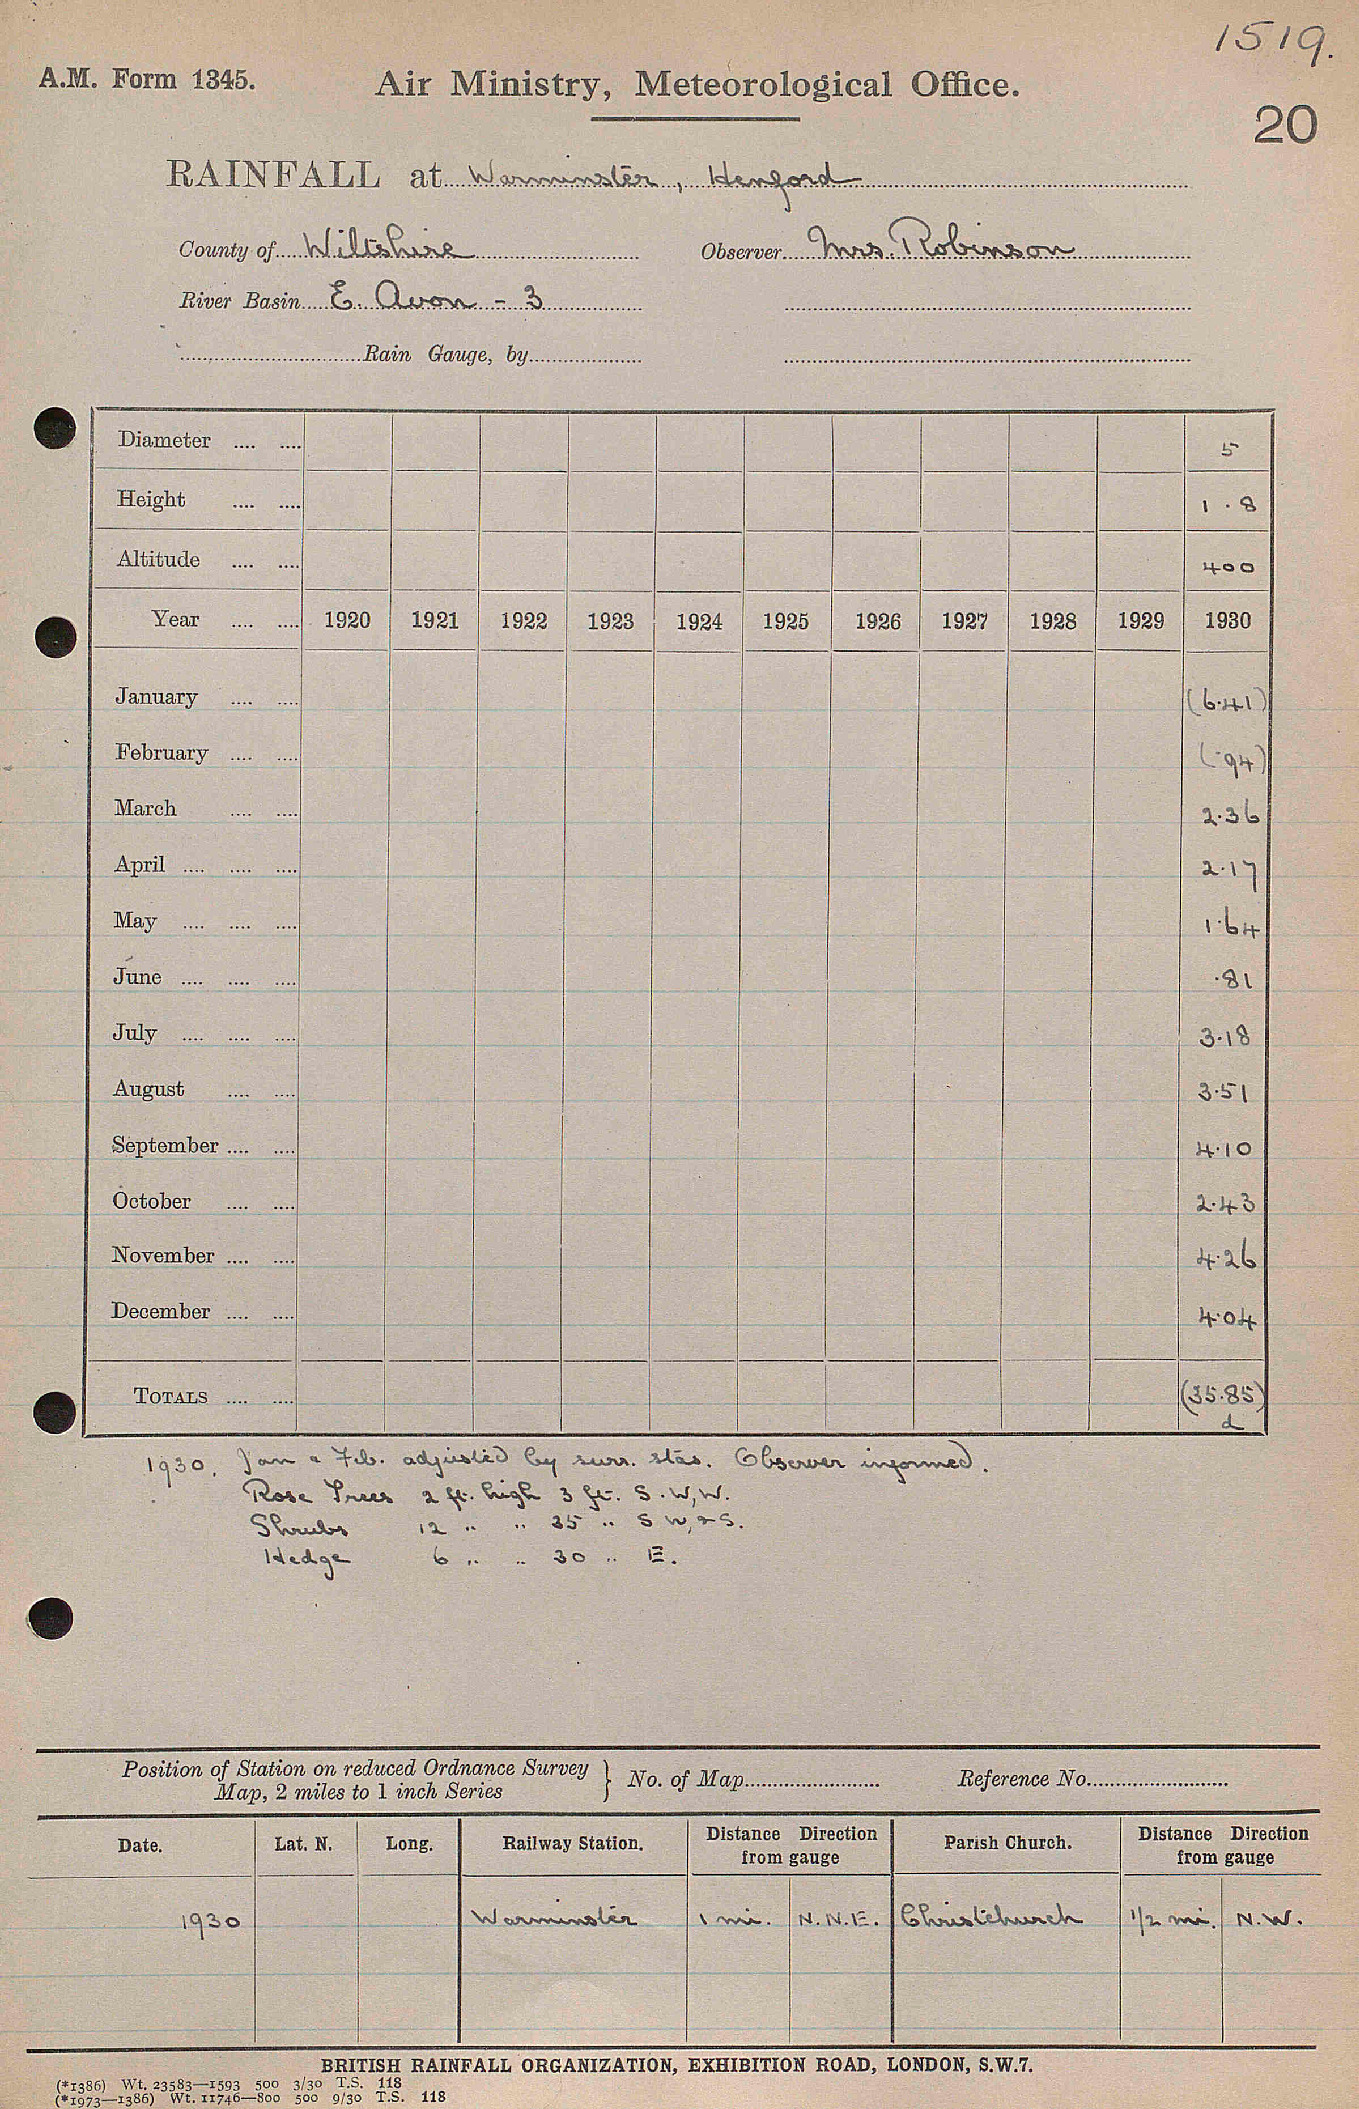 1519.
A.M. Form 1345. Air Ministry, Meteorological Office.
20
RAINFALL at Warminster, Henford
County of Wiltshire Observer Mrs. Robinson
River Basin E. Avon - 3
Rain Gauge, by
Diameter .... .... 5
Height .... .... 1.8
Altitude .... .... 400
Year .... .... 1920 1921 1922 1923 1924 1925 1926 1927 1928 1929 1930
January .... .... (6.41)
February .... .... (.94)
March .... .... 2.36
April .... .... .... 2.17
May .... .... .... 1.64
June .... .... .... .81
July .... .... .... 3.18
August .... .... 3.51
September .... .... 4.10
October .... .... 2.43
November .... .... 4.26
December .... .... 4.04
TOTALS .... .... (35.85)
d
1930. Jan & Feb. adjusted by surr. stas. Observer informed.
Rose Trees 2 ft. high 3 ft. S.W, W.
Shrubs 12 " " 35 " SW, & S.
Hedge 6 " " 30 " E.
Position of Station on reduced Ordnance Survey
Map, 2 miles to 1 inch Series } No. of Map Reference No.
Date. Lat. N. Long. Railway Station. Distance Direction from gauge Parish Church. Distance Direction from gauge
1930 Warminster 1 mi. N.N.E. Christchurch 1/2 mi. N.W.
BRITISH RAINFALL ORGANIZATION, EXHIBITION ROAD, LONDON, S.W.7.
(*1386) Wt. 23583—1593 500 3/30 T.S. 118
(*1973—1386) Wt. 11746—800 500 9/30 T.S. 118